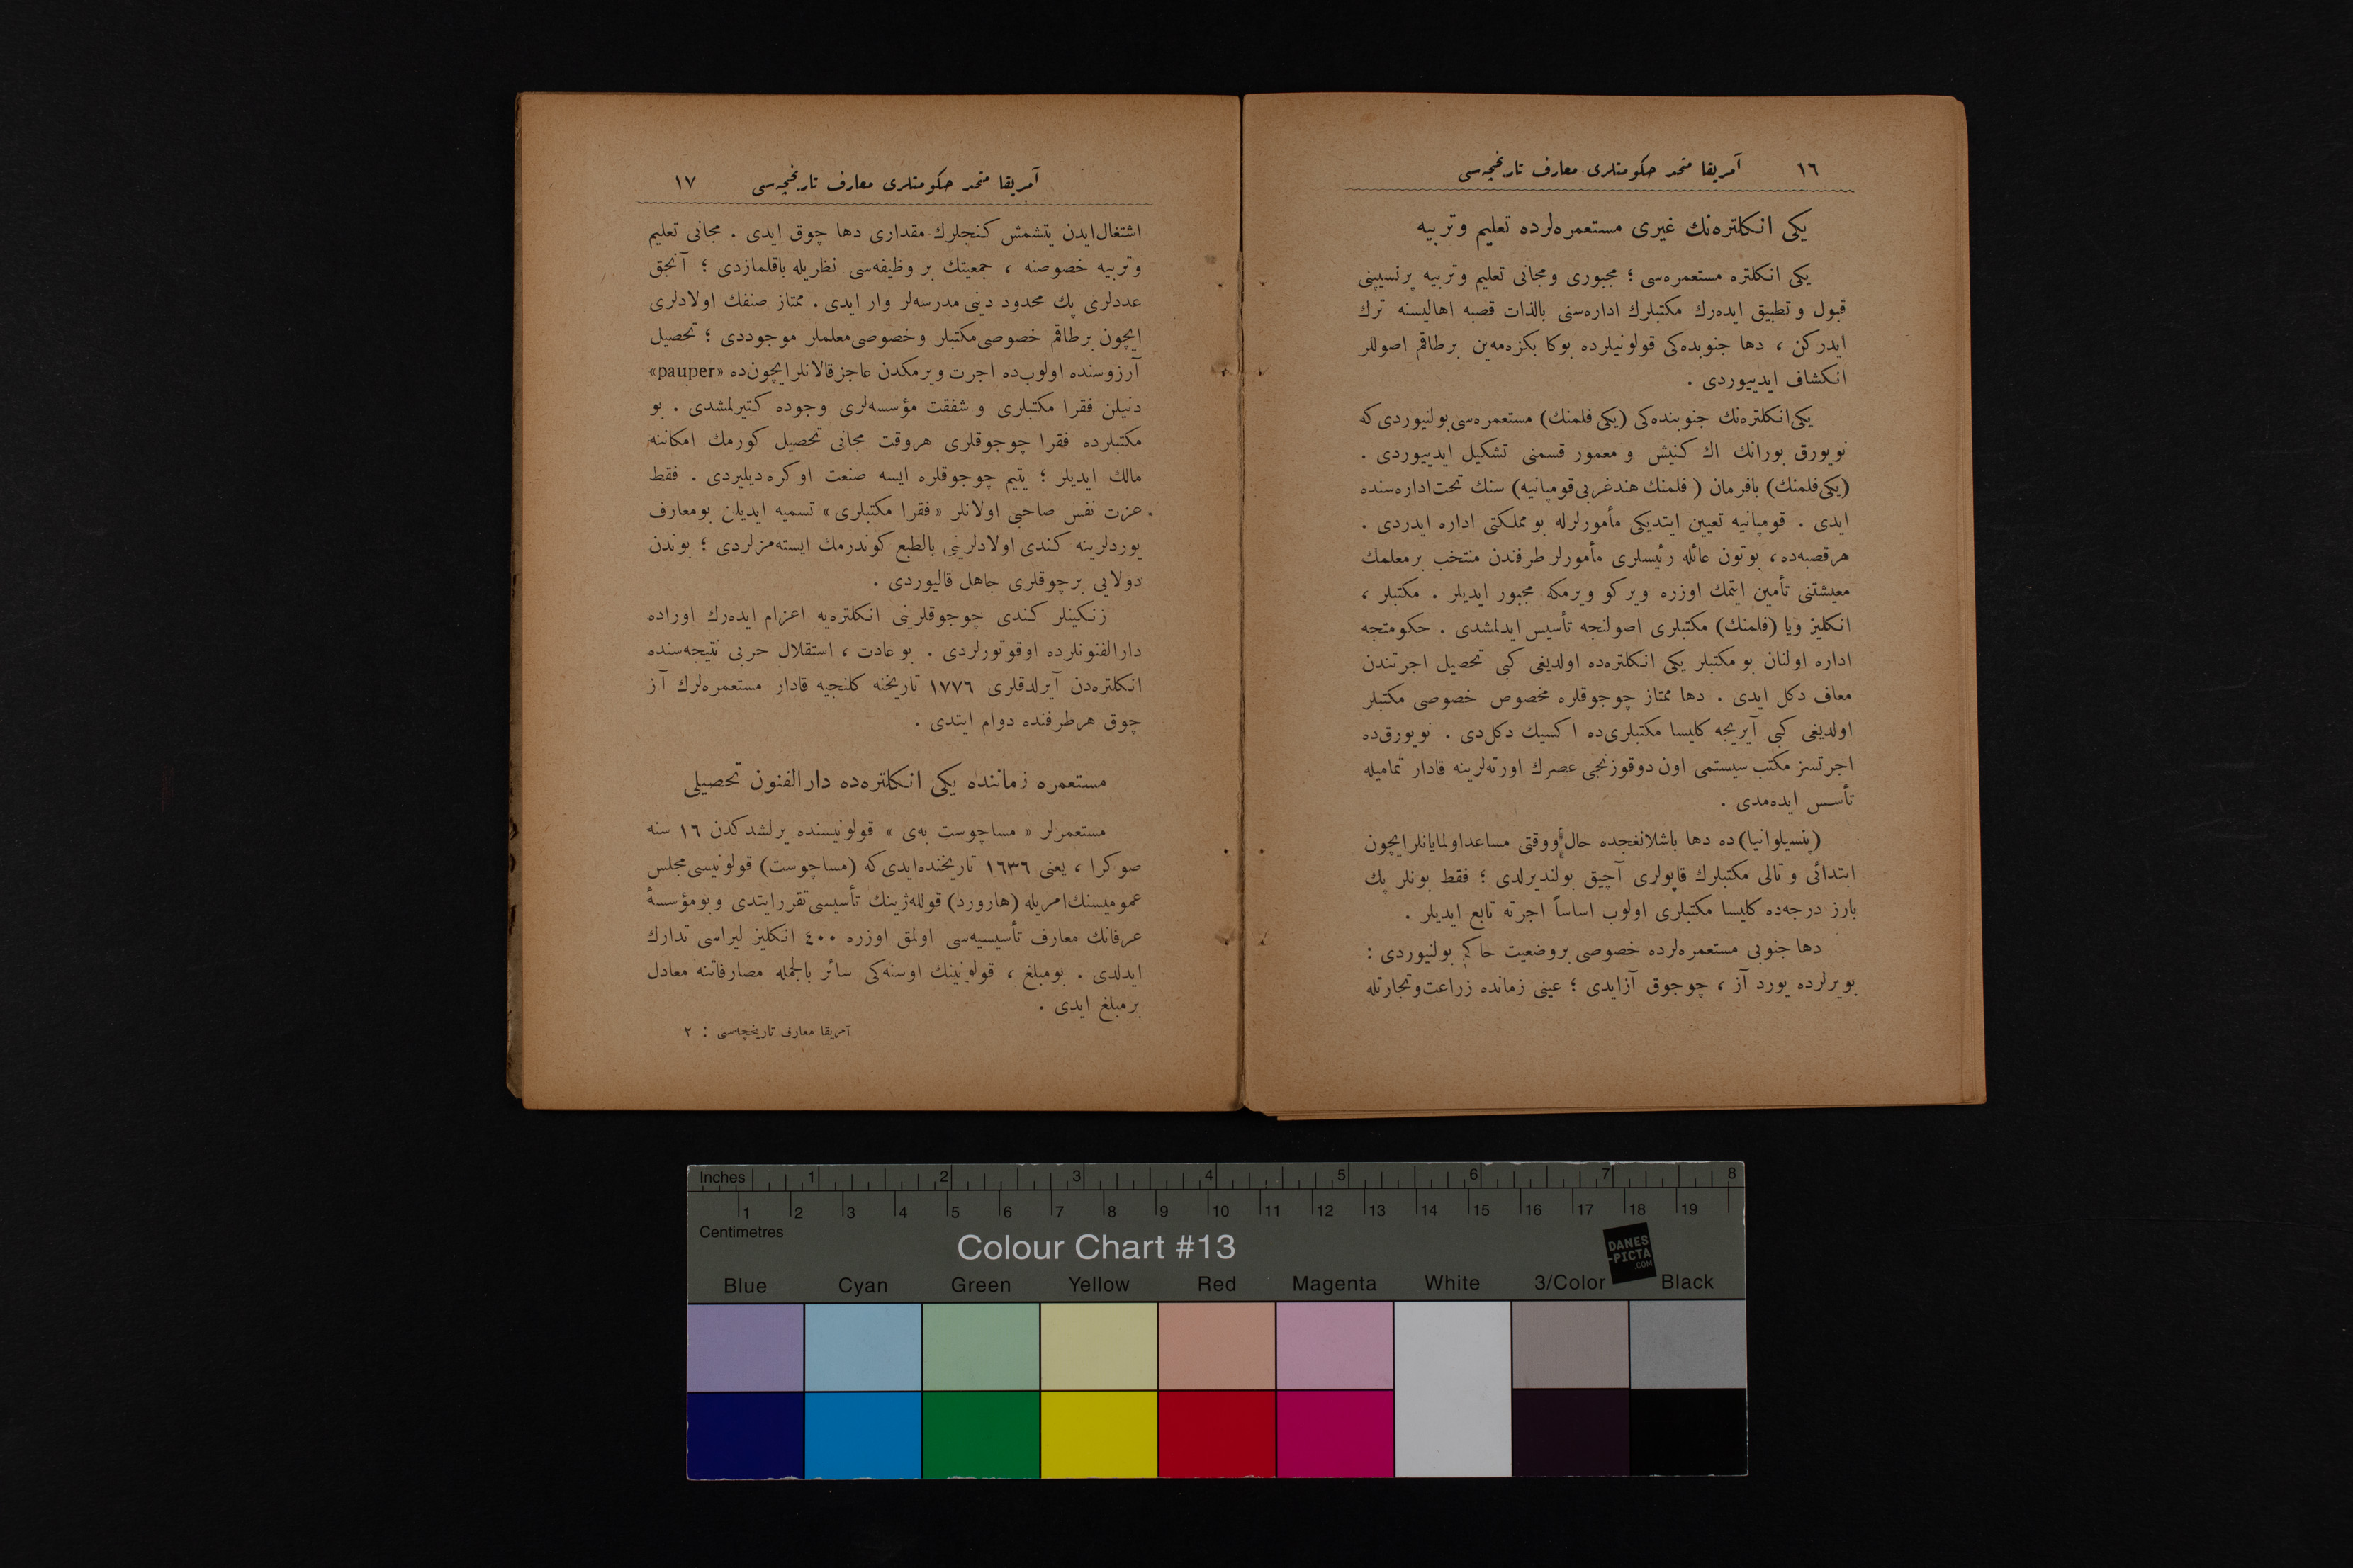 ١٦ آمریقا متحد حکومتلری معارف تاریخچه‌سی
یکی انکلتره‌نك غیری مستعمره‌لرده تعلیم وتربیه
یکی انکلتره مستعمره‌سی ؛ مجبوری ومجانی تعلیم وتربیه پرنسیپنی
قبول وتطبیق ایده‌رك مکتبلرك اداره‌سنی بالذات قصبه اهالیسنه ترك
ایدرکن ، دها جنوبده‌کی قولونیلرده بوکا بکزه‌مه‌ین برطاقم اصوللر
انکشاف ایدییوردی .
یکی‌انکلتره‌نك جنوبنده‌کی (یکی فلمنك) مستعمره‌سی بولنیوردی‌که
نویورق بورانك اك کنیش و معمور قسمنی تشکیل ایدییوردی .
(یکی‌فلمنك) بافرمان ( فلمنك هندغربی‌قومپانیه) سنك تحت‌اداره‌سنده
ایدی . قومپانیه تعیین ایتدیکی مأمورلرله بو مملکتی اداره ایدردی .
هرقصبه‌ده، بوتون عائله رئیسلری مأمورلر طرفندن منتخب برمعلمك
معیشتنی تأمین ایتمك اوزره ویرکو ویرمکه مجبور ایدیلر . مکتبلر ،
انکلیز ویا (فلمنك) مکتبلری اصولنجه تأسیس ایدلمشدی . حکومتجه
اداره اولنان بو مکتبلر یکی انکلتره‌ده اولدیغی کبی تحصیل اجرتندن
معاف دکل ایدی . دها ممتاز چوجوقلره مخصوص خصوصی مکتبلر
اولدیغی کبی آیریجه کلیسا مکتبلری‌ده اکسیك دکل‌دی . نویورق‌ده
اجرتسز مکتب سیستمی اون دوقوزنجی عصرك اورته‌لرینه قادار تمامیله
تأسس ایده‌مدی .
(پنسیلوانیا) ده دها باشلانغجده حال ووقتی مساعداولمایانلرایچون
ابتدائی و تالی مکتبلرك قاپولری آچیق بولندیرلدی ؛ فقط بونلر پك
بارز درجه‌ده کلیسا مکتبلری اولوب اساساً اجرته تابع ایدیلر .
دها جنوبی مستعمره‌لرده خصوصی بروضعیت حاکم بولنیوردی :
بویرلرده یورد آز ، چوجوق آزایدی ؛ عینی زمانده زراعت‌وتجارتله
آمریقا متحد حکومتلری معارف تاریخچه‌سی ١٧
اشتغال‌ایدن یتشمش کنجلرك مقداری دها چوق ایدی . مجانی تعلیم
وتربیه خصوصنه ، جمعیتك بر وظیفه‌سی نظریله باقلمازدی ؛ آنجق
عددلری پك محدود دینی مدرسه‌لر وار ایدی . ممتاز صنفك اولادلری
ایچون برطاقم خصوصی‌مکتبلر وخصوصی‌معلملر موجوددی ؛ تحصیل
آرزوسنده اولوب‌ده اجرت ویرمکدن عاجزقالانلرایچون‌ده «pauper»
دنیلن فقرا مکتبلری و شفقت مؤسسه‌لری وجوده کتیرلمشدی . بو
مکتبلرده فقرا چوجوقلری هروقت مجانی تحصیل کورمك امکاننه
مالك ایدیلر ؛ یتیم چوجوقلره ایسه صنعت اوکره‌دیلیردی . فقط
عزت نفس صاحبی اولانلر « فقرا مکتبلری » تسمیه ایدیلن بومعارف
یوردلرینه کندی اولادلرینی بالطبع کوندرمك ایسته‌مزلردی ؛ بوندن
دولایی برچوقلری جاهل قالیوردی .
زنکینلر کندی چوجوقلرینی انکلتره‌یه اعزام ایده‌رك اوراده
دارالفنونلرده اوقوتورلردی . بو عادت ، استقلال حربی نتیجه‌سنده
انکلتره‌دن آیرلدقلری ١٧٧٦ تاریخنه کلنجیه قادار مستعمره‌لرك آز
چوق هرطرفنده دوام ایتدی .
مستعمره زماننده یکی انکلتره‌ده دارالفنون تحصیلی
مستعمرلر « مساچوست به‌ی » قولونیسنده یرلشدکدن ١٦ سنه
صوکرا ، یعنی ١٦٣٦ تاریخنده‌ایدی‌که (مساچوست) قولونیسی مجلس
عمومیسنك‌امریله (هارورد) قولله‌ژینك تأسیسی تقررایتدی وبومؤسسهٔ
عرفانك معارف تأسیسیه‌سی اولمق اوزره ٤٠٠ انکلیز لیراسی تدارك
ایدلدی . بومبلغ ، قولونینك اوسنه‌کی سائر بالجمله مصارفاتنه معادل
برمبلغ ایدی .
آمریقا معارف تاریخچه‌سی : ٢
Inches 1 2 3 4 5 6 7 8
1 2 3 4 5 6 7 8 9 10 11 12 13 14 15 16 17 18 19
Centimetres
Colour Chart #13
DANES
-PICTA
.COM
Blue Cyan Green Yellow Red Magenta White 3/Color Black